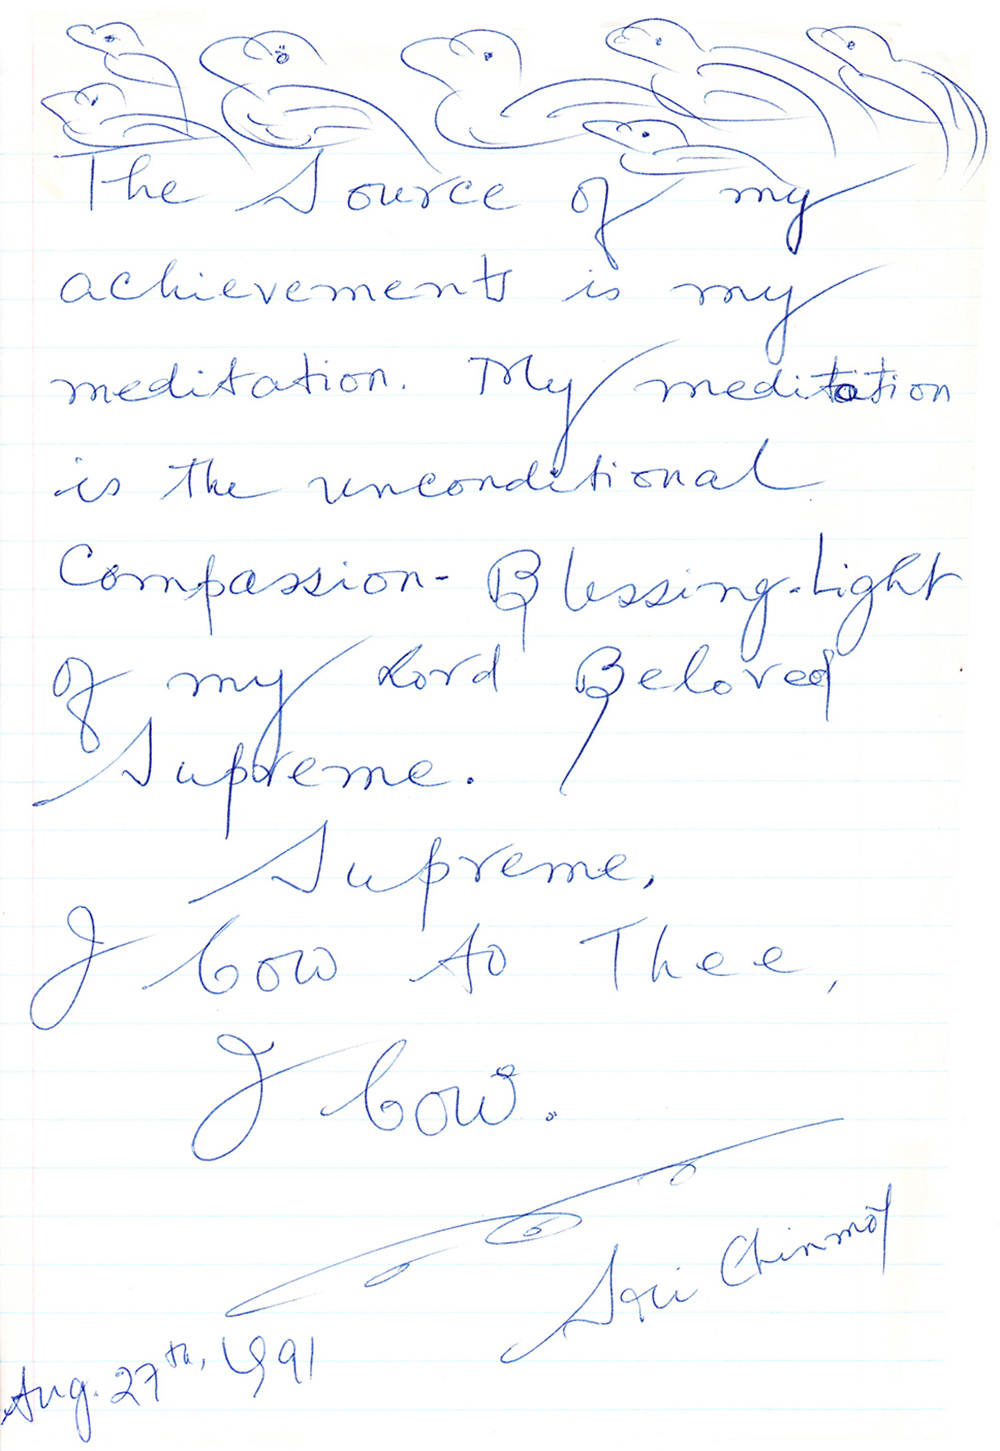 The Source of my
achievements is my
meditation. My meditation
is the unconditional
Compassion-Blessing-Light
of my Lord Beloved
Supreme.
Supreme,
I bow to Thee,
I bow.
Sri Chinmoy
Aug. 27th, 1991